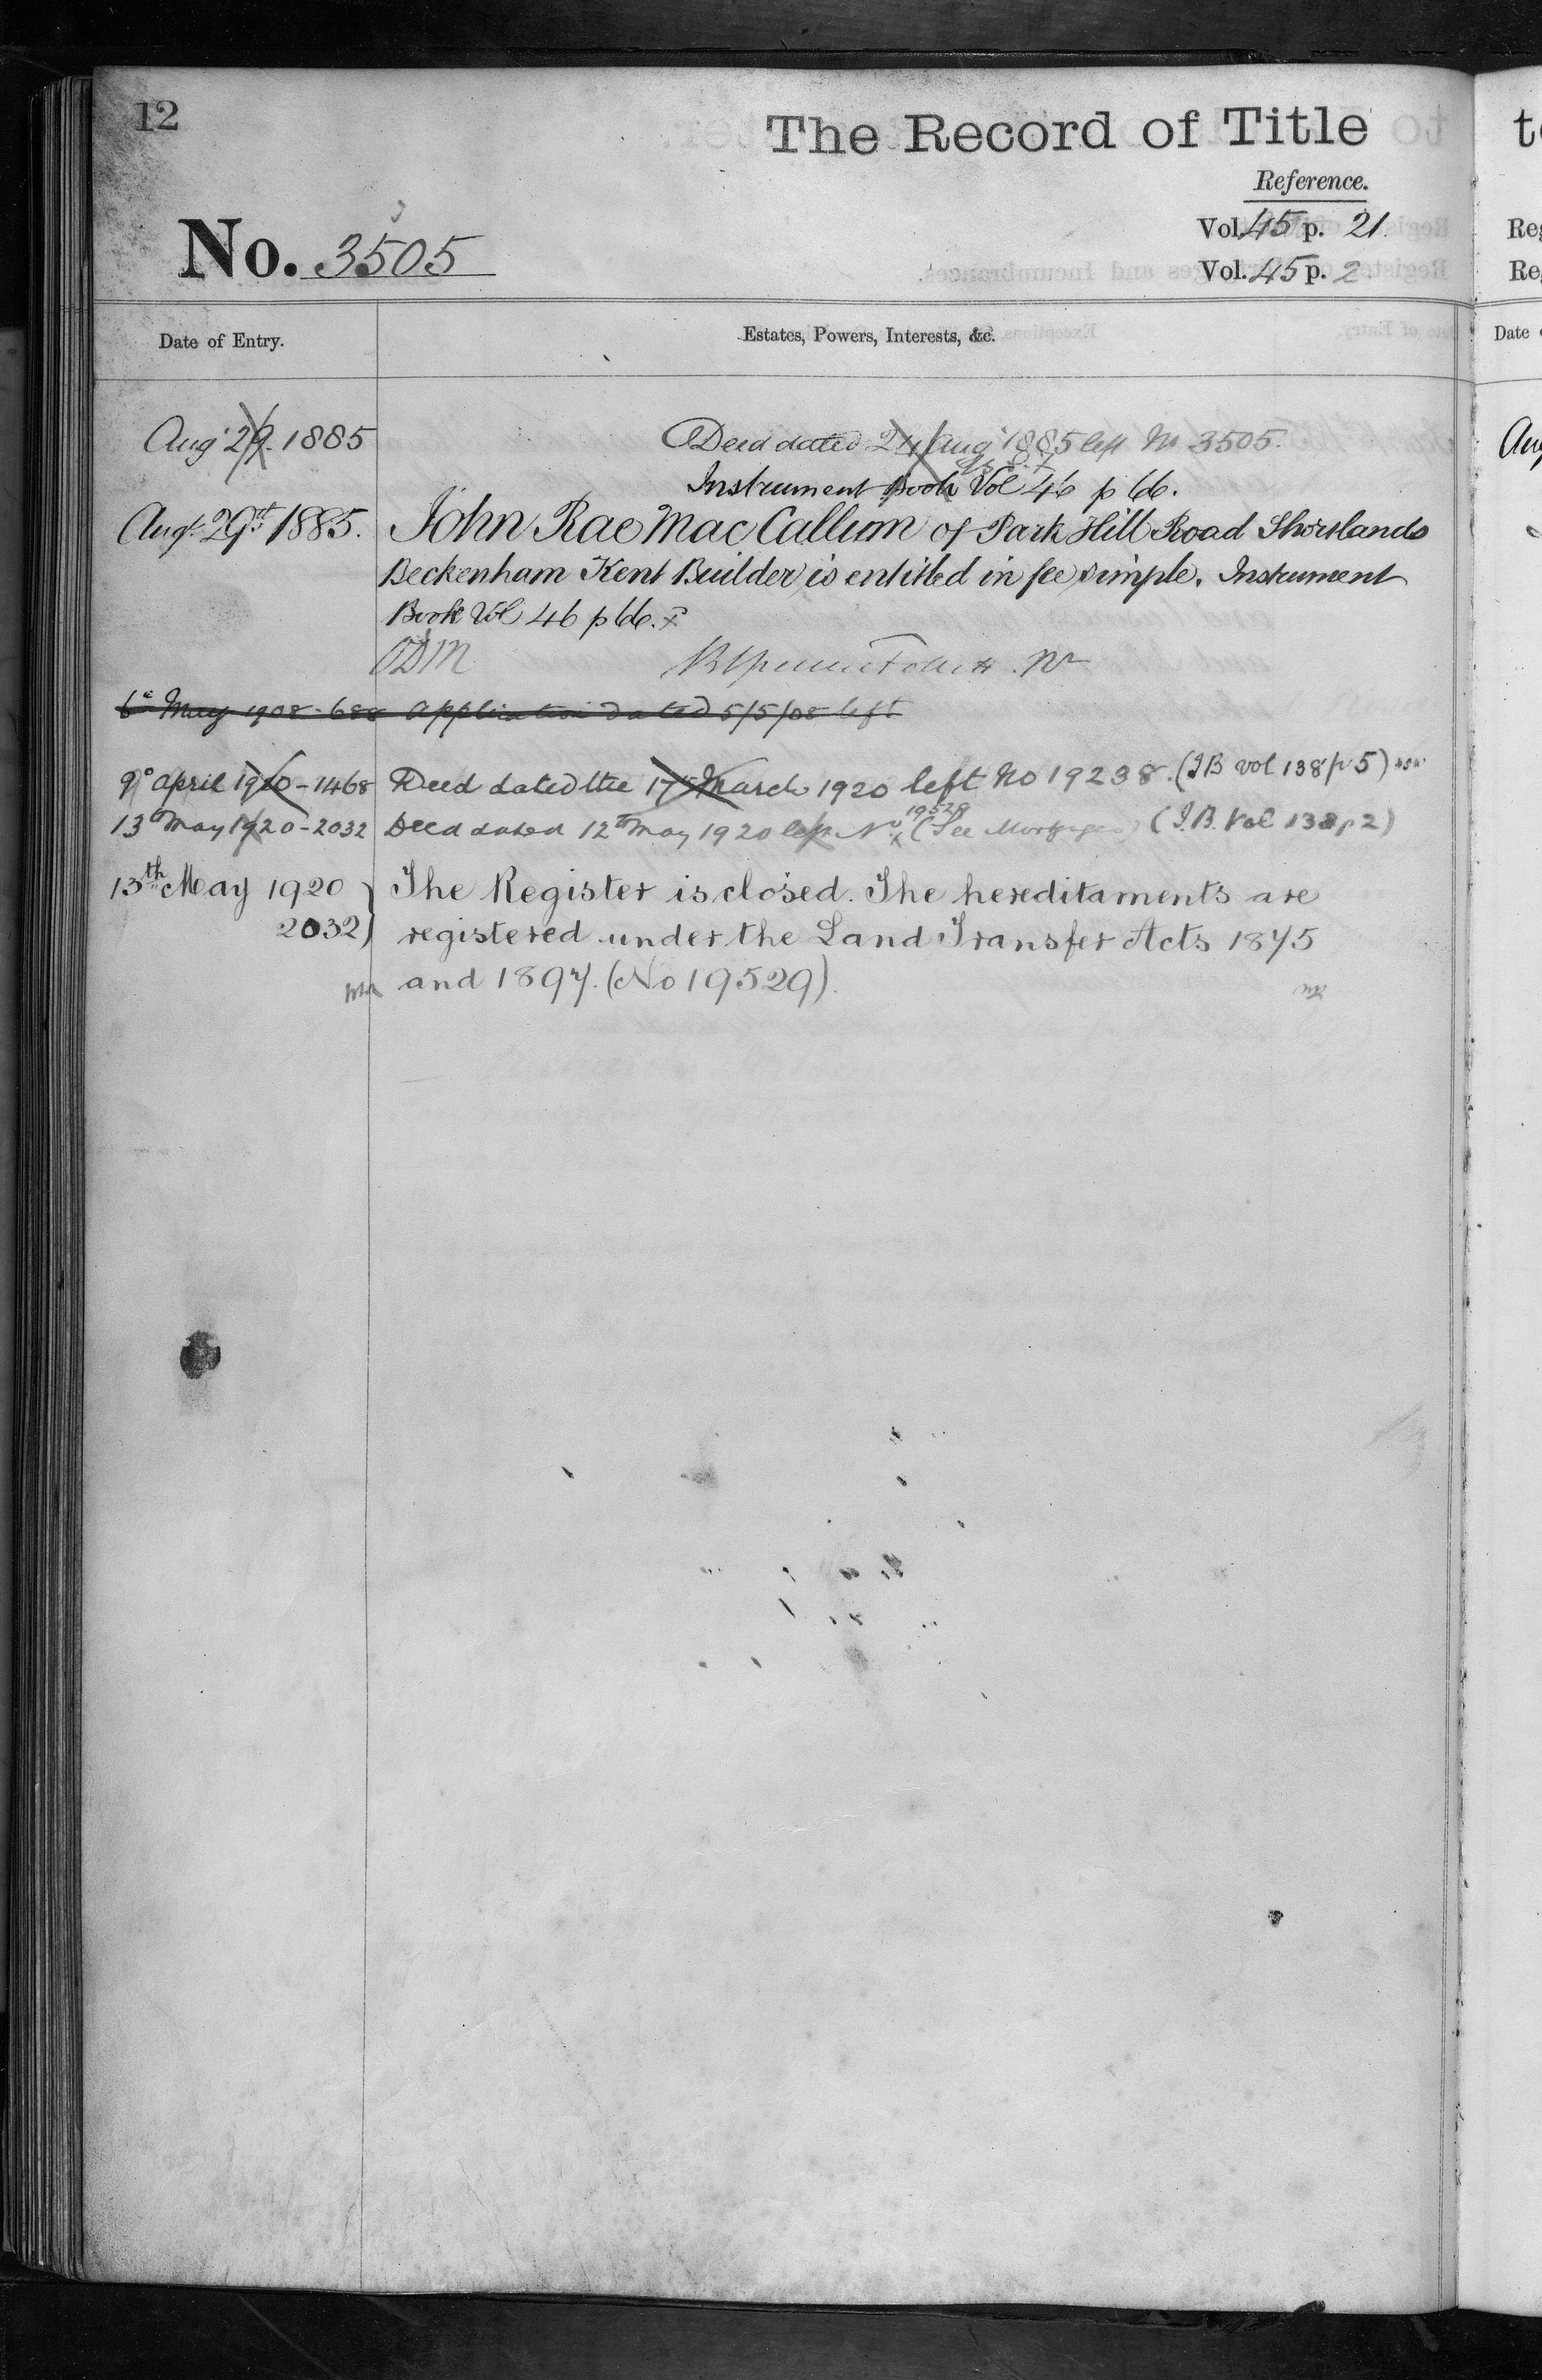 12
The Record of Title
Reference.
No. 3505
Vol. 45 p. 21.
Vol. 45 p. 2
Date of Entry.
Estates, Powers, Interests, &c.
Augt 29. 1885
Deed dated 24 Augt 1885 left No 3505.
Instrument Book Vol 46 p 66.
Augt 29th 1885.
John Rae Mac Callum of Park Hill Road Shortlands
Beckenham Kent Builder is entitled in fee simple. Instrument
Book Vol 46 p 66. x
6th May 1908 - 688 Application dated 5/5/08 left
9th April 1920 - 1468 Deed dated the 17th March 1920 left No 19238. (IB vol 138 p 5)
13th May 1920 - 2032 Deed dated 12th May 1920 left No 19529 (See Mortgages) (I.B. Vol 138 p 2)
13th May 1920 The Register is closed. The hereditaments are
2032) registered under the Land Transfer Acts 1875
and 1897. (No 19529).
t
Reg
Reg
Date
Aug